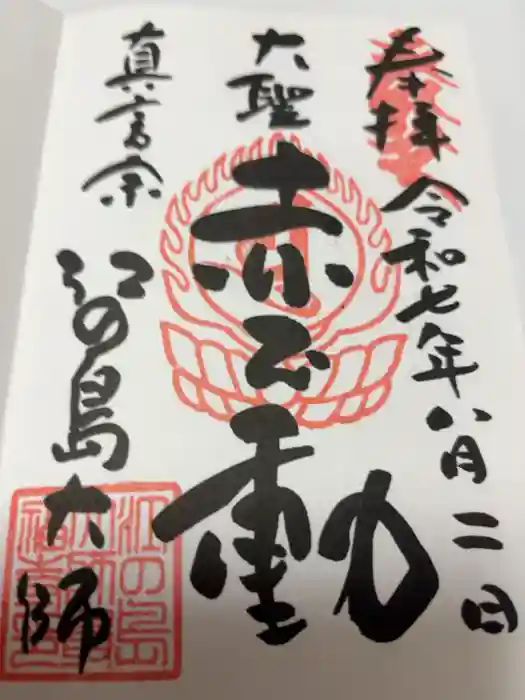 奉拝
令和七年八月二日
大聖
赤不動
真言宗
江の島大師